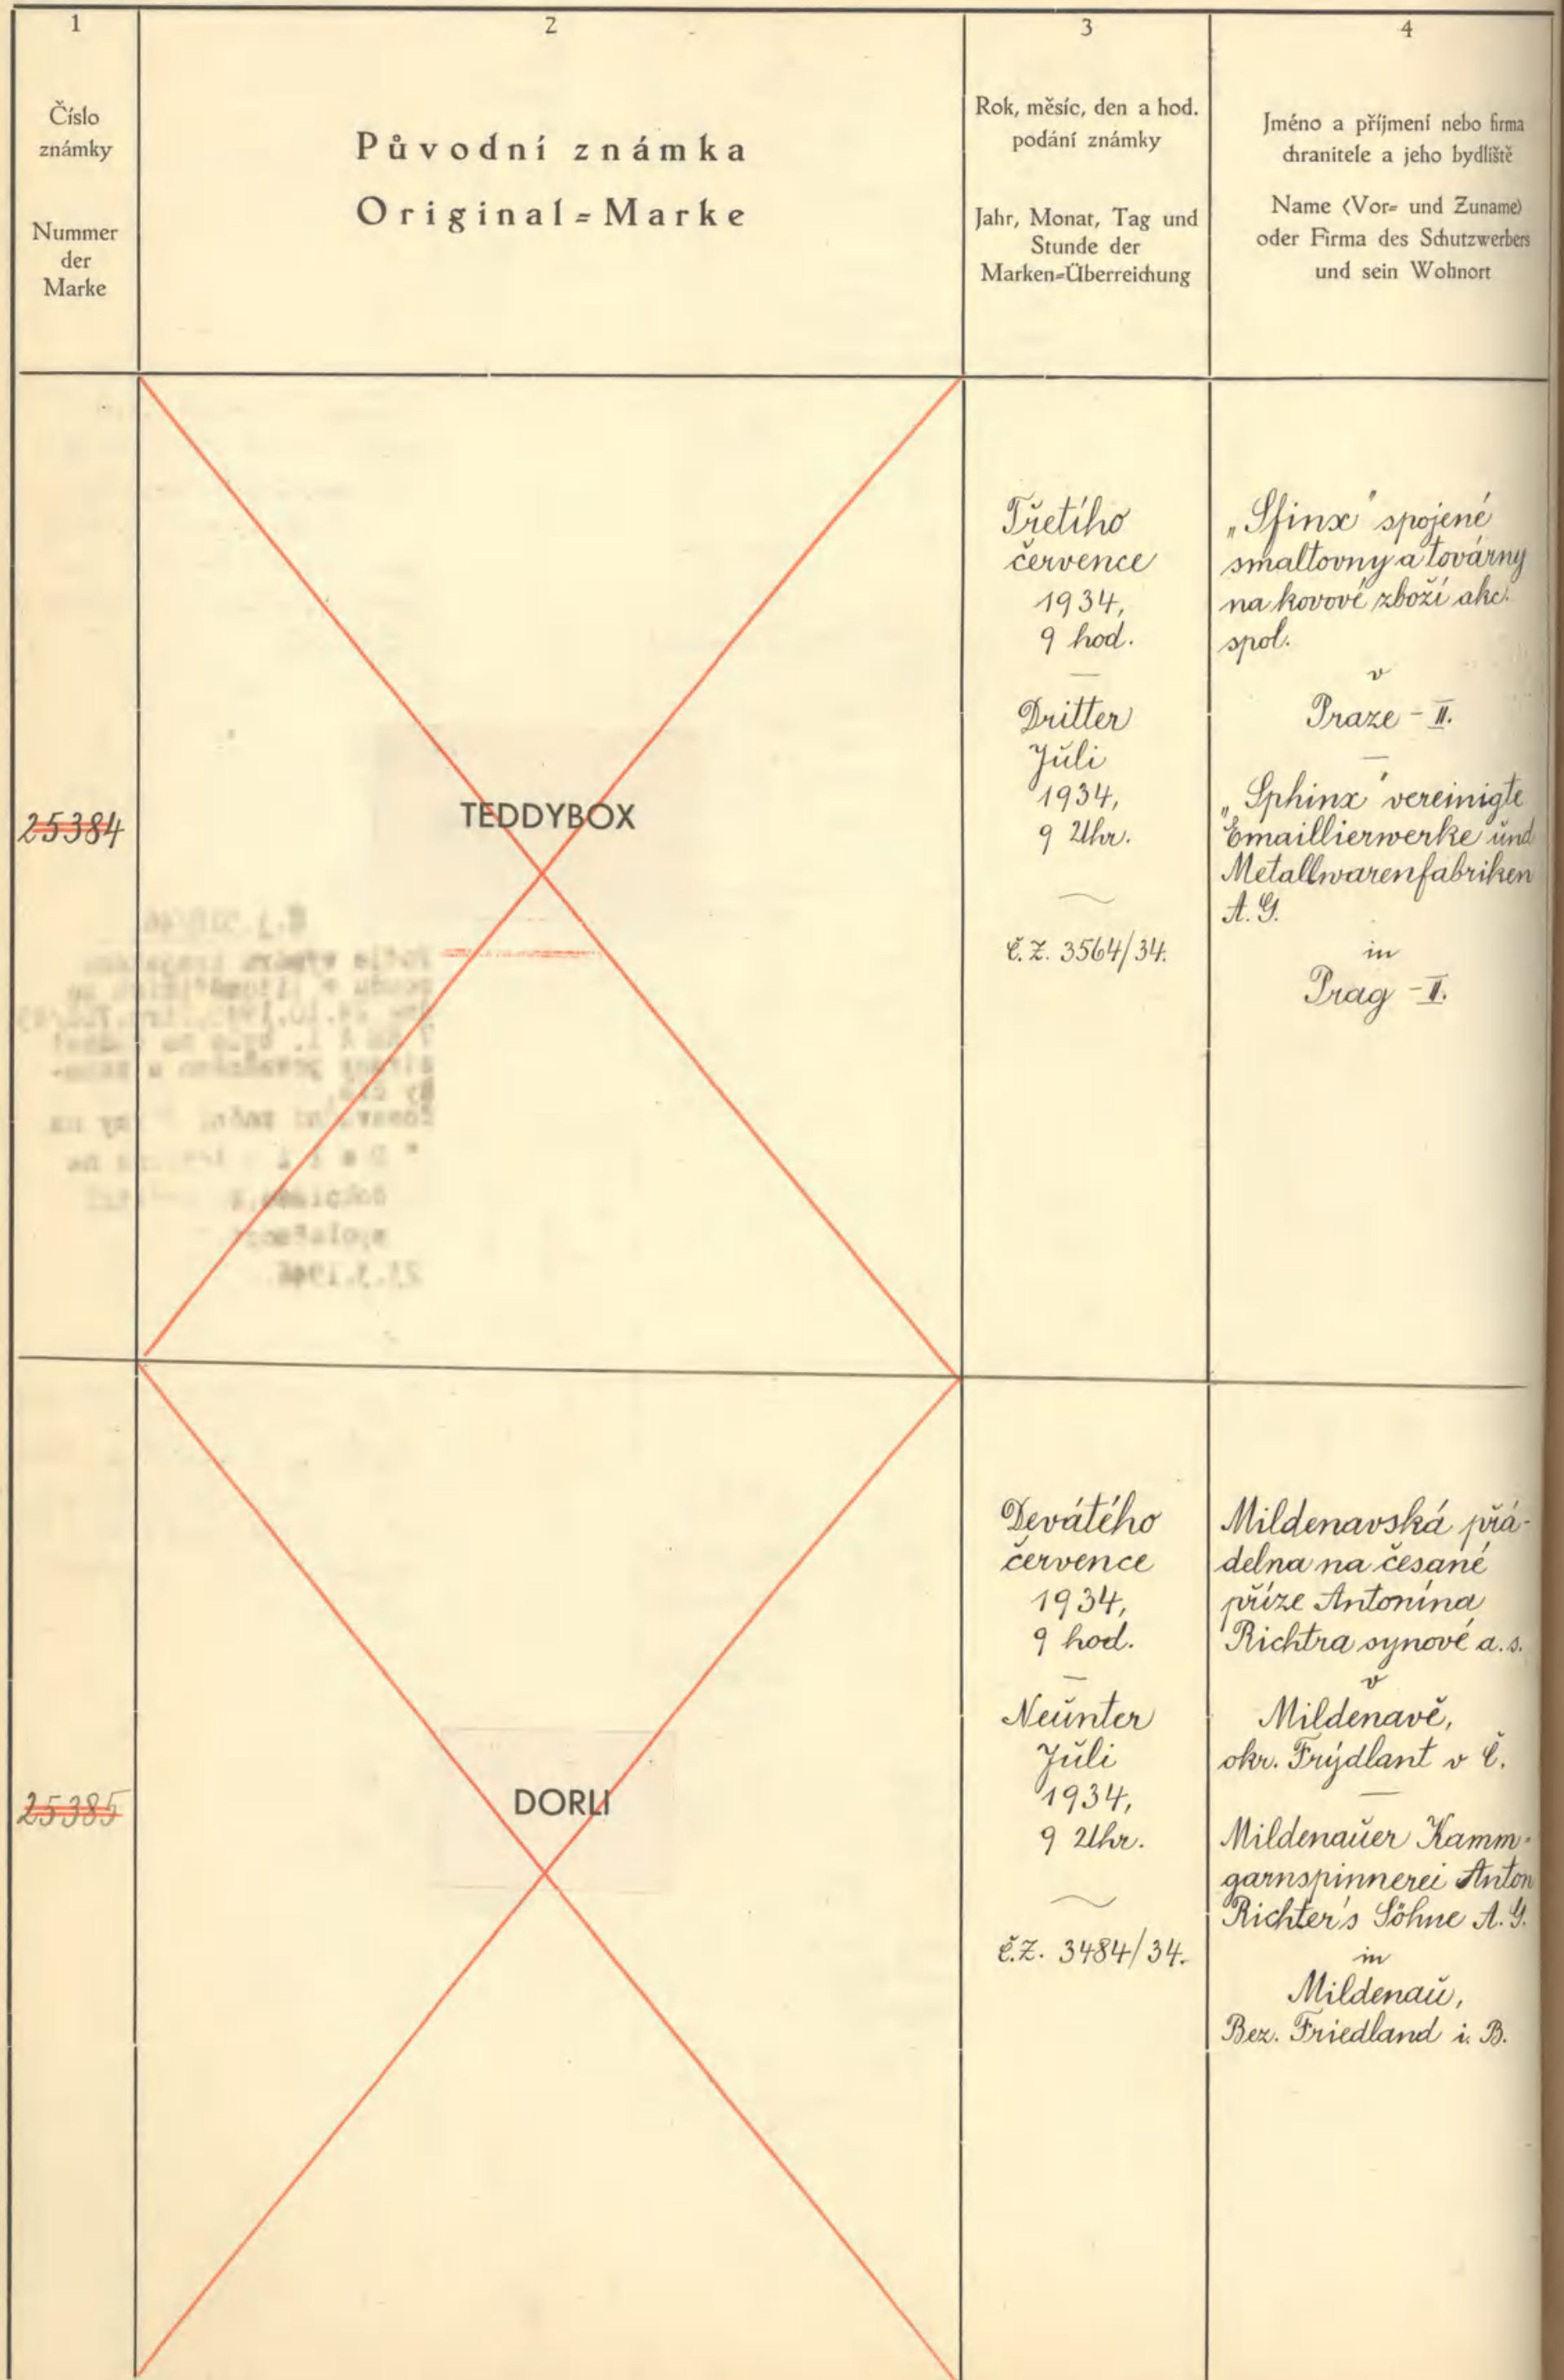 1
Číslo
známky
Nummer
der
Marke
2
Původní známka
Original=Marke
3
Rok, měsíc, den a hod.
podání známky
Jahr, Monat, Tag und
Stunde der
Marken=Überreichung
4
Jméno a příjmení nebo firma
chranitele a jeho bydliště
Name (Vor= und Zuname)
oder Firma des Schutzwerbers
und sein Wohnort
25384
TEDDYBOX
Třetího
července
1934,
9 hod.
—
Dritter
Jŭli
1934,
9 Uhr.
č.ž. 3564/34.
„Sfinx" spojené
smaltovny a továrny
na kovové zboží akc.
spol.
v
Praze - II.
—
„Sphinx" vereinigte
Emaillierwerke ŭnd
Metallwarenfabriken
A.G.
in
Prag - II.
25385
DORLI
Devátého
července
1934,
9 hod.
—
Neŭnter
Jŭli
1934,
9 Uhr.
č.ž. 3484/34.
Mildenavská přá-
delna na česané
příze Antonína
Richtra synové a.s.
v
Mildenavě,
okr. Frýdlant v Č.
—
Mildenaŭer Kamm-
garnspinnerei Anton
Richter's Söhne A.G.
in
Mildenaŭ,
Bez. Friedland i. B.